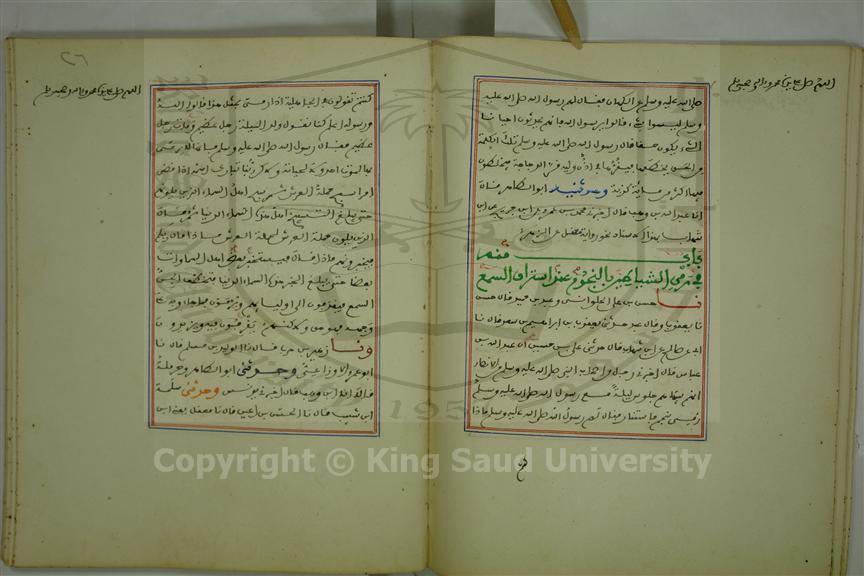 اللهم صل على سيدنا محمد وءاله وصحبه وسلم
صلى الله عليه وسلم عن الكهان فقال لهم رسول الله صلى الله عليه
وسلم ليسوا بشيء قالوا يا رسول الله فانهم يحدثون احيانا
الشيء يكون حقا قال رسول الله صلى الله عليه وسلم تلك الكلمة
من الجن يخطفها فيقرها في أذن وليه قر الدجاجة فيخلطون
فيها اكثر من مائة كذبة وحدثني ابو الطاهر قال
انا عبد الله بن وهب قال اخبرني محمد بن عمرو عن ابن جريج عن ابن
شهاب بهذا الاسناد نحو رواية معقل عن الزهري
باب منه
في رمي الشياطين بالنجوم عند استراق السمع
نا حسن بن علي الحلواني وعبد بن حميد قال حسن
نا يعقوب وقال عبد حدثني يعقوب بن ابراهيم بن سعد قال نا
ابي عن صالح عن ابن شهاب قال حدثني علي بن حسين ان عبد الله بن
عباس قال اخبرني رجل من اصحاب النبي صلى الله عليه وسلم من الانصار
انهم بينما هم جلوس ليلة مع رسول الله صلى الله عليه وسلم
رمي بنجم فاستنار فقال لهم رسول الله صلى الله عليه وسلم ماذا
٢٦
اللهم صل على سيدنا محمد وءاله وصحبه وسلم
كنتم تقولون في الجاهلية اذا رمي بمثل هذا قالوا الله
ورسوله اعلم كنا نقول ولد الليلة رجل عظيم ومات رجل
عظيم فقال رسول الله صلى الله عليه وسلم فانها لا يرمى
بها لموت احد ولا لحياته ولكن ربنا تبارك اسمه اذا قضى
امرا سبح حملة العرش ثم سبح اهل السماء الذين يلونهم
حتى يبلغ التسبيح اهل هذه السماء الدنيا ثم قال
الذين يلون حملة العرش لحملة العرش ماذا قال ربكم
فيخبرونهم ماذا قال فيستخبر بعض اهل السماوات
بعضا حتى يبلغ الخبر هذه السماء الدنيا فتخطف الجن
السمع فيقذفون الى اوليائهم ويرمون فما جاءوا به على
وجهه فهو حق ولكنهم يقرفون فيه ويزيدون
ونا زهير بن حرب قال نا الوليد بن مسلم قال نا
ابو عمرو الاوزاعي وحدثني ابو الطاهر وحرملة
قالا انا ابن وهب قال اخبرني يونس وحدثني سلمة
ابن شبيب قال نا الحسن بن اعين قال نا معقل يعني ابن
Copyright © King Saud University
195